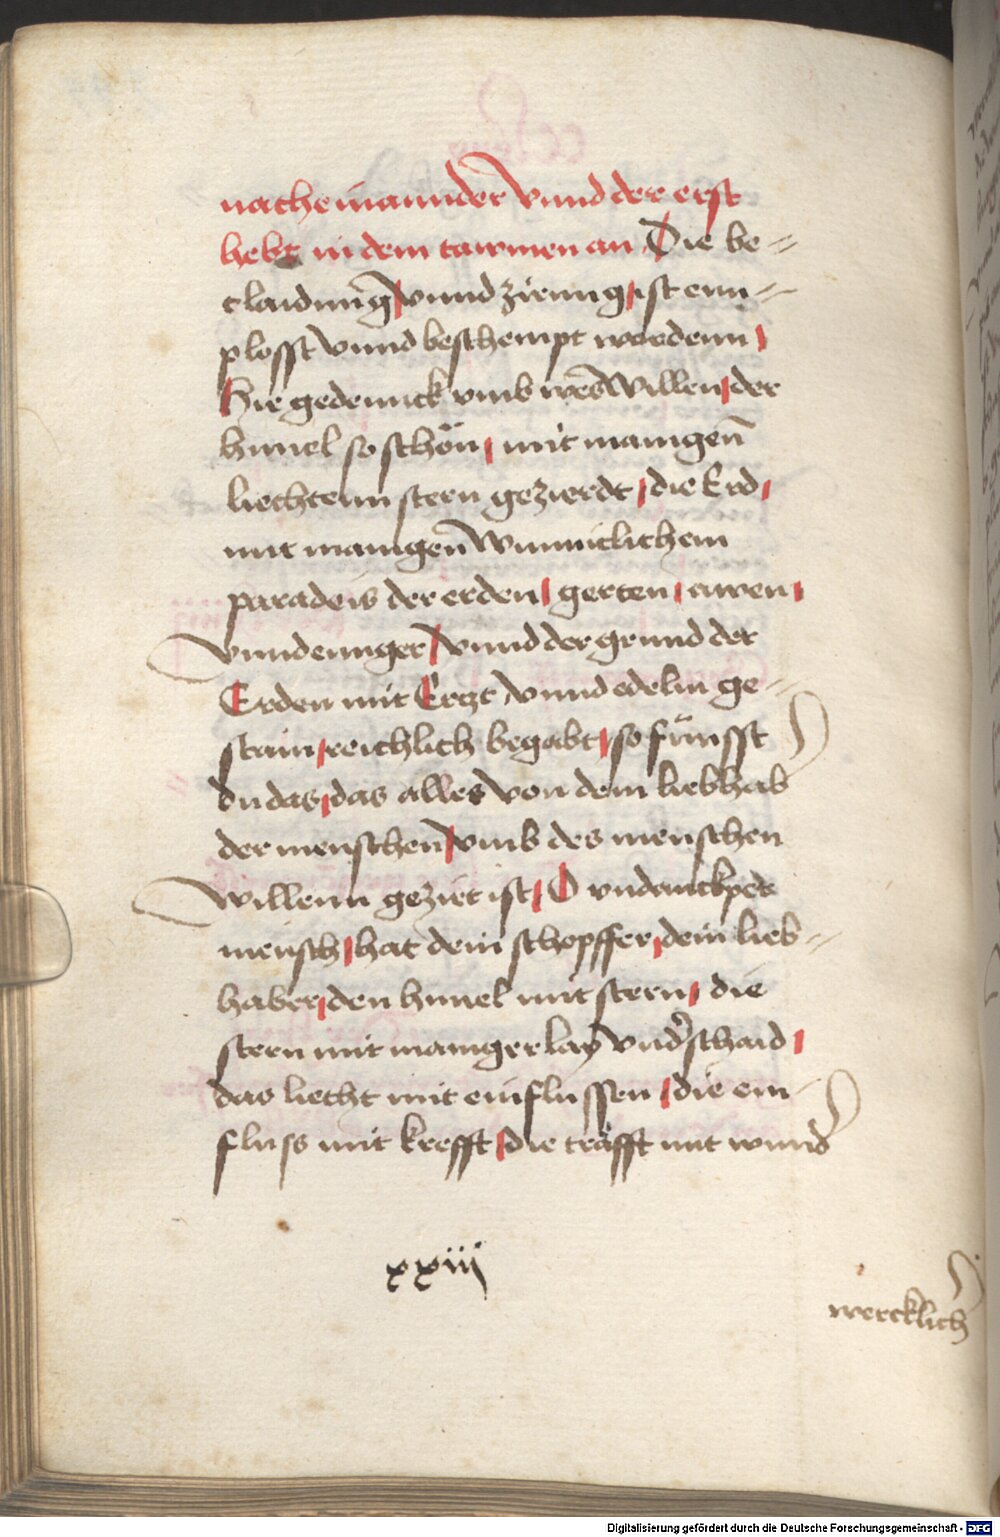 nacheinannder vnnd der erst
hebt in dem tawmen an Die be⸗
claidung vnnd zierung ist enn⸗
plosst vnnd beschempt wordenn
Hie gedennck vmb wes willen der
himel so schön mit manigen̄
liechtenn stern gezierdt die Erd
mit manigen̄ wunniclichem
paradeis der erden gerten awen
vnnd ennger vnnd der grund der
Erden mit Erczt vnnd edelm ge⸗
stain reichlich begabt so finsst
du das das alles von dem liebhab
der menschen̄ vmb des menschen
willenn geziert ist O vndanckper
mensch hat dein schopffer dein lieb⸗
haber den himel mit stern die
stern mit manigerlay vnd̓schaid
das liecht mit einflussen die ein⸗
fluss mit krefft die kräfft mit wund̓
xxiij
wercklich
Digitalisierung gefördert durch die Deutsche Forschungsgemeinschaft - DFG